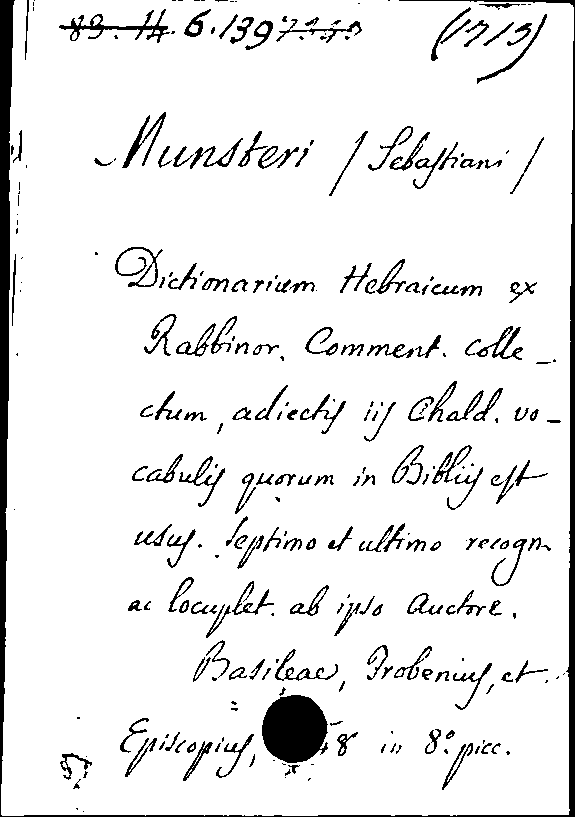 83. 14. 6. 139 (1713)
Munsteri / Sebastiani /
Dictionarium Hebraicum ex
Rabbinor. Comment. colle-
ctum, adiectis iis Chald. vo-
cabulis quorum in Bibliis est
usus. Septimo et ultimo recogn
ac locuplet. ab ipso Auctore.
Basileae, Frobenius, et
Episcopius, 48 in 8.º picc.